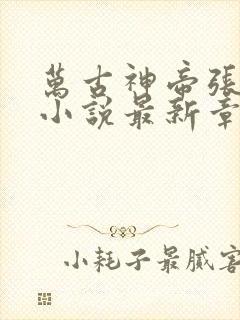 萬古神帝張
小說最新章
小耗子最膩害